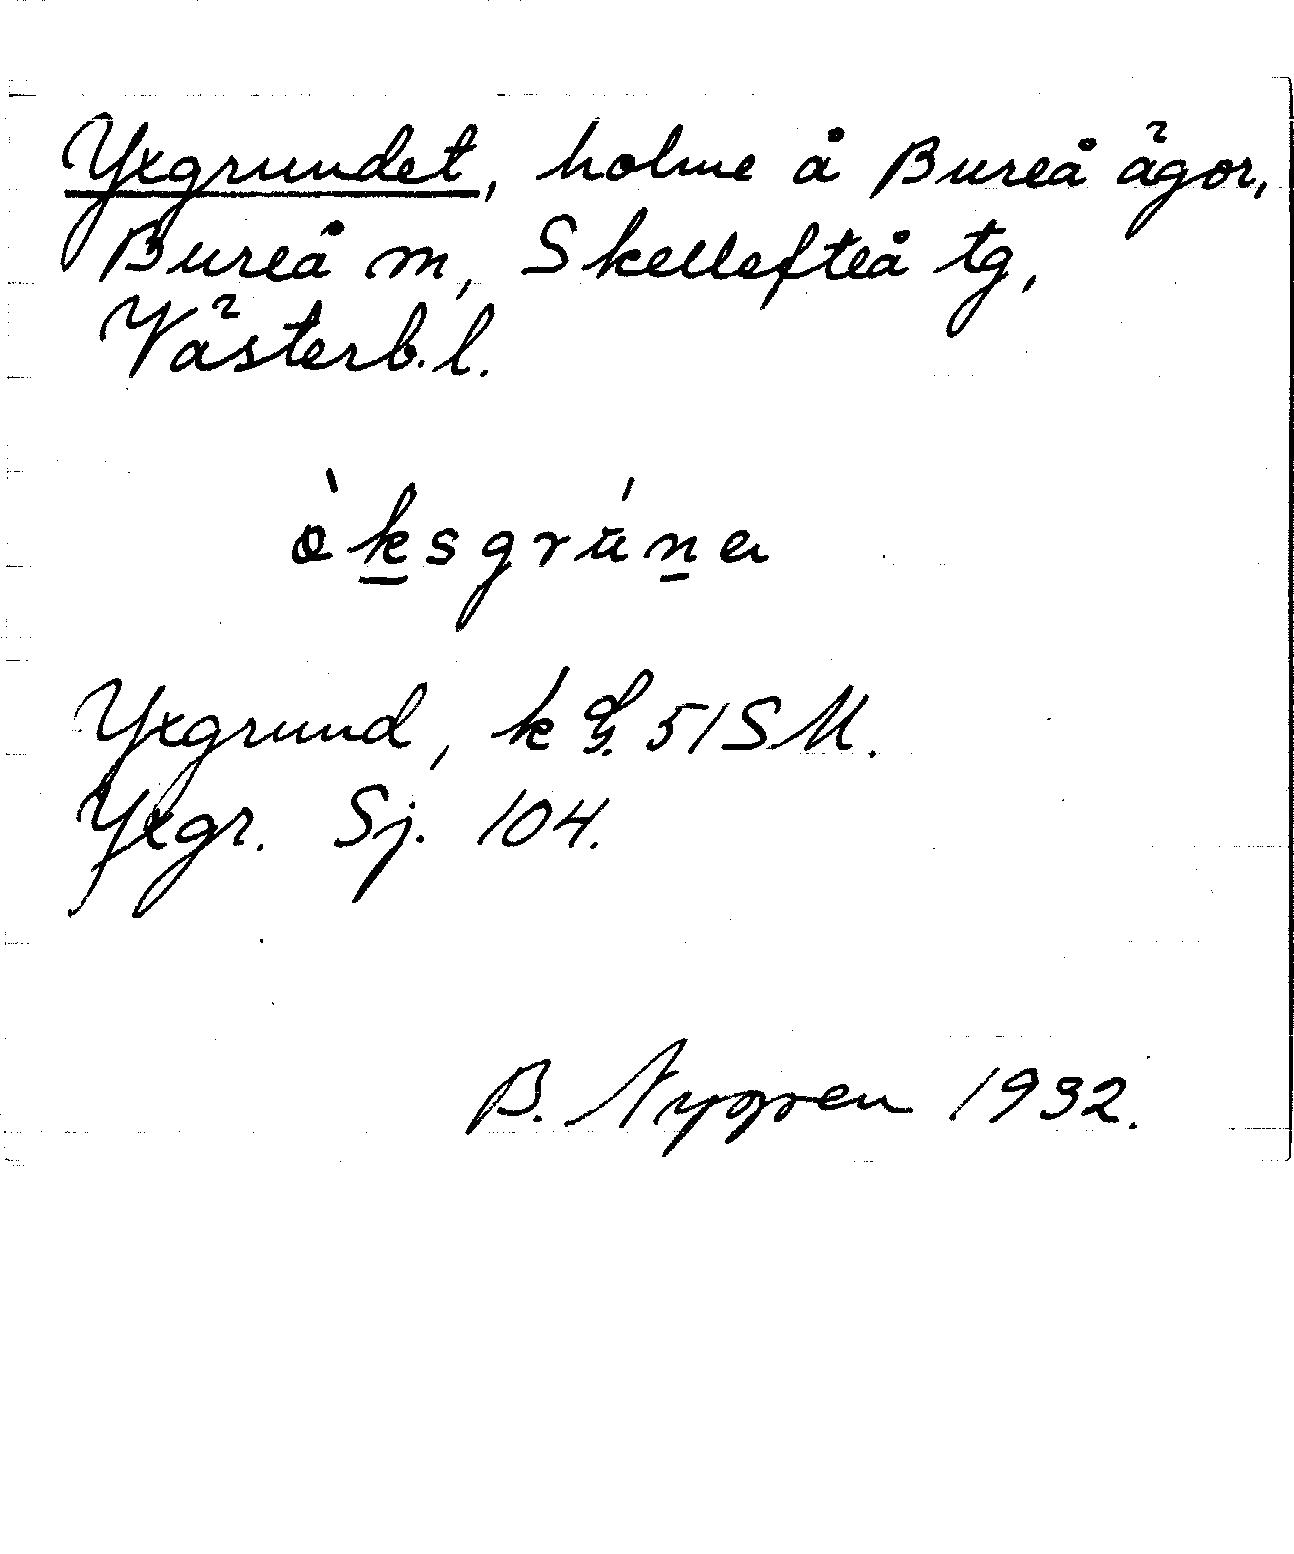 Yxgrundet, holme å Bureå ägor,
Bureå m, Skellefteå tg,
Västerb. l.
òksgrúna
Yxgrund, k 51SM.
Yxgr. Sj. 104.
B. Nygren 1932.